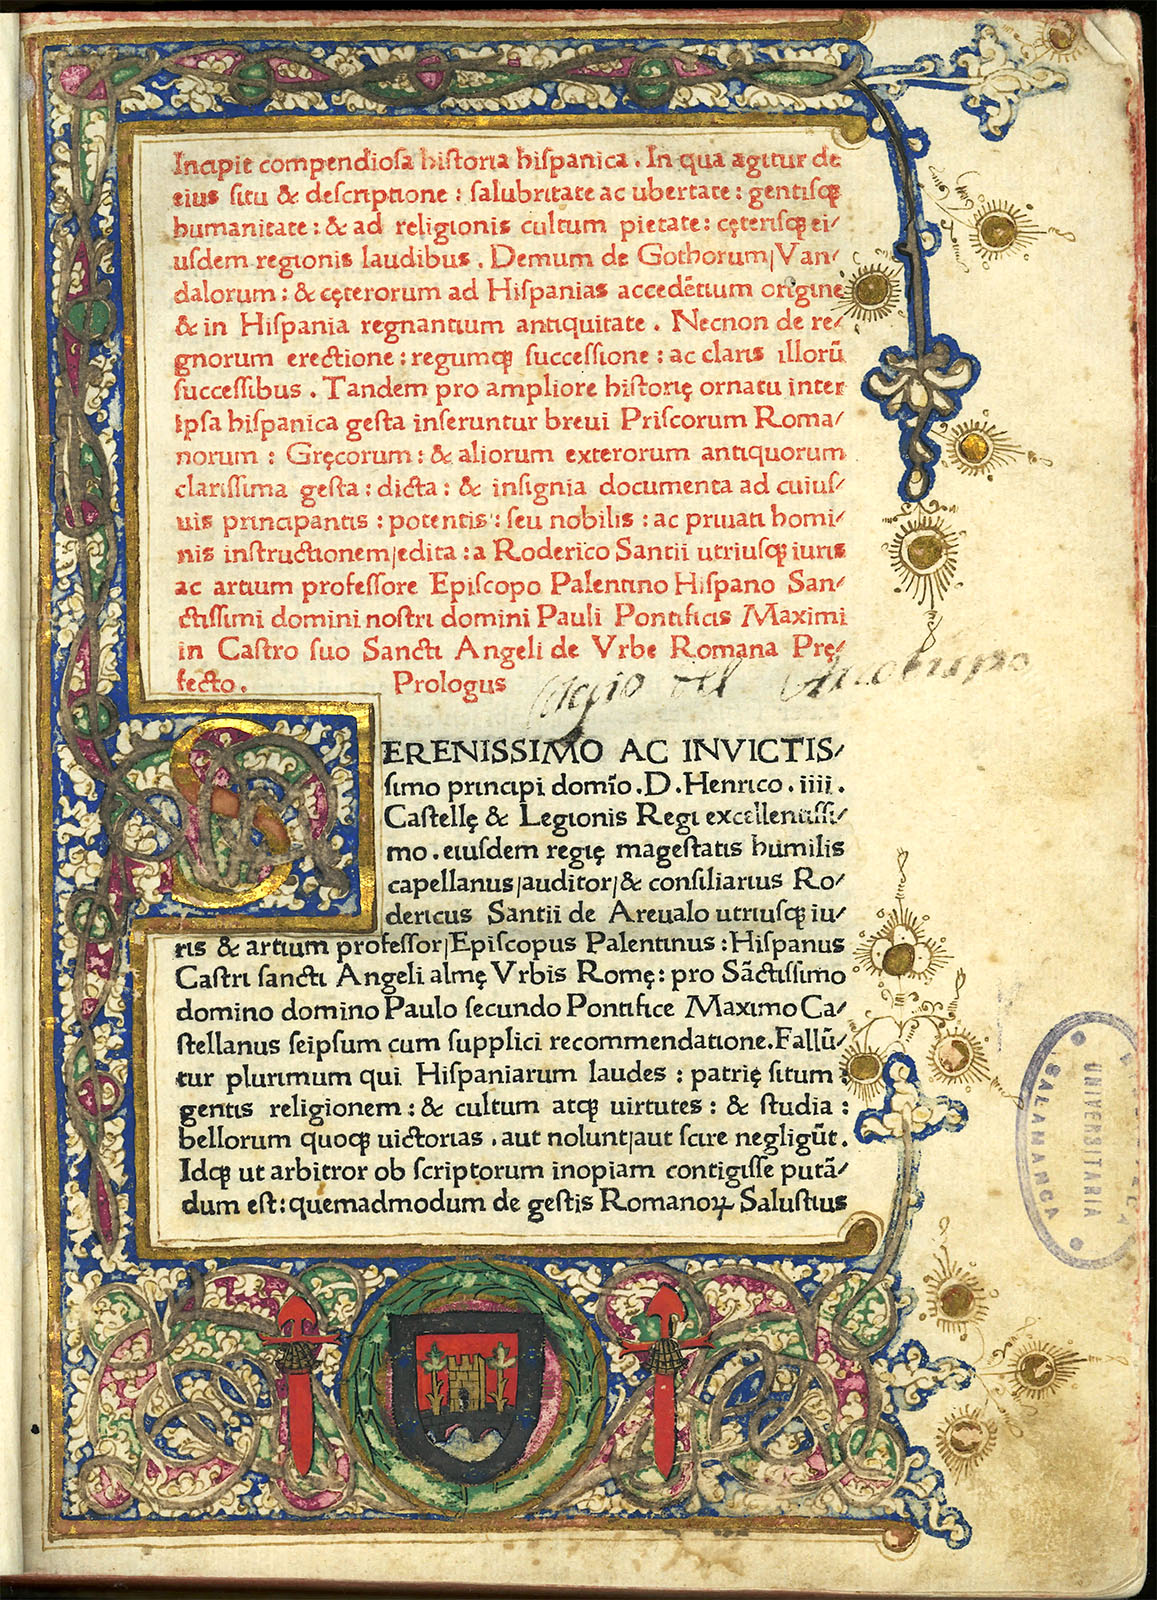 Incipit compendiosa historia hispanica. In qua agitur de
eius situ & descriptione : salubritate ac ubertate : gentisqꝫ
humanitate : & ad religionis cultum pietate : cęterisqꝫ ei/
usdem regionis laudibus. Demum de Gothorum/Van/
dalorum : & cęterorum ad Hispanias accedētium origine
& in Hispania regnantium antiquitate. Necnon de re/
gnorum erectione : regumqꝫ successione : ac claris illorū
successibus. Tandem pro ampliore historię ornatu inter
ipsa hispanica gesta inseruntur breui Priscorum Roma/
norum : Gręcorum : & aliorum exterorum antiquorum
clarissima gesta : dicta : & insignia documenta ad cuius/
uis principantis : potentis : seu nobilis : ac priuati homi/
nis instructionem/edita : a Roderico Santii utriusqꝫ iuris
ac artium professore Episcopo Palentino Hispano San/
ctissimi domini nostri domini Pauli Pontificis Maximi
in Castro suo Sancti Angeli de Vrbe Romana Pre̜/
fecto. Prologus
del
SERENISSIMO AC INVICTIS/
simo principi domīo. D. Henrico. iiii.
Castellę & Legionis Regi excellentissi/
mo. eiusdem regię magestatis humilis
capellanus/auditor/& consiliarius Ro/
dericus Santii de Areualo utriusqꝫ iu/
ris & artium professor/Episcopus Palentinus : Hispanus
Castri sancti Angeli almę Vrbis Romę : pro Sāctissimo
domino domino Paulo secundo Pontifice Maximo Ca/
stellanus seipsum cum supplici recommendatione. Fallū/
tur plurimum qui Hispaniarum laudes : patrię situm :
gentis religionem : & cultum atqꝫ uirtutes : & studia :
bellorum quoqꝫ uictorias. aut nolunt/aut scire negligūt.
Idqꝫ ut arbitror ob scriptorum inopiam contigisse putā/
dum est : quemadmodum de gestis Romanoꝝ Salustius
UNIVERSITARIA
SALAMANCA